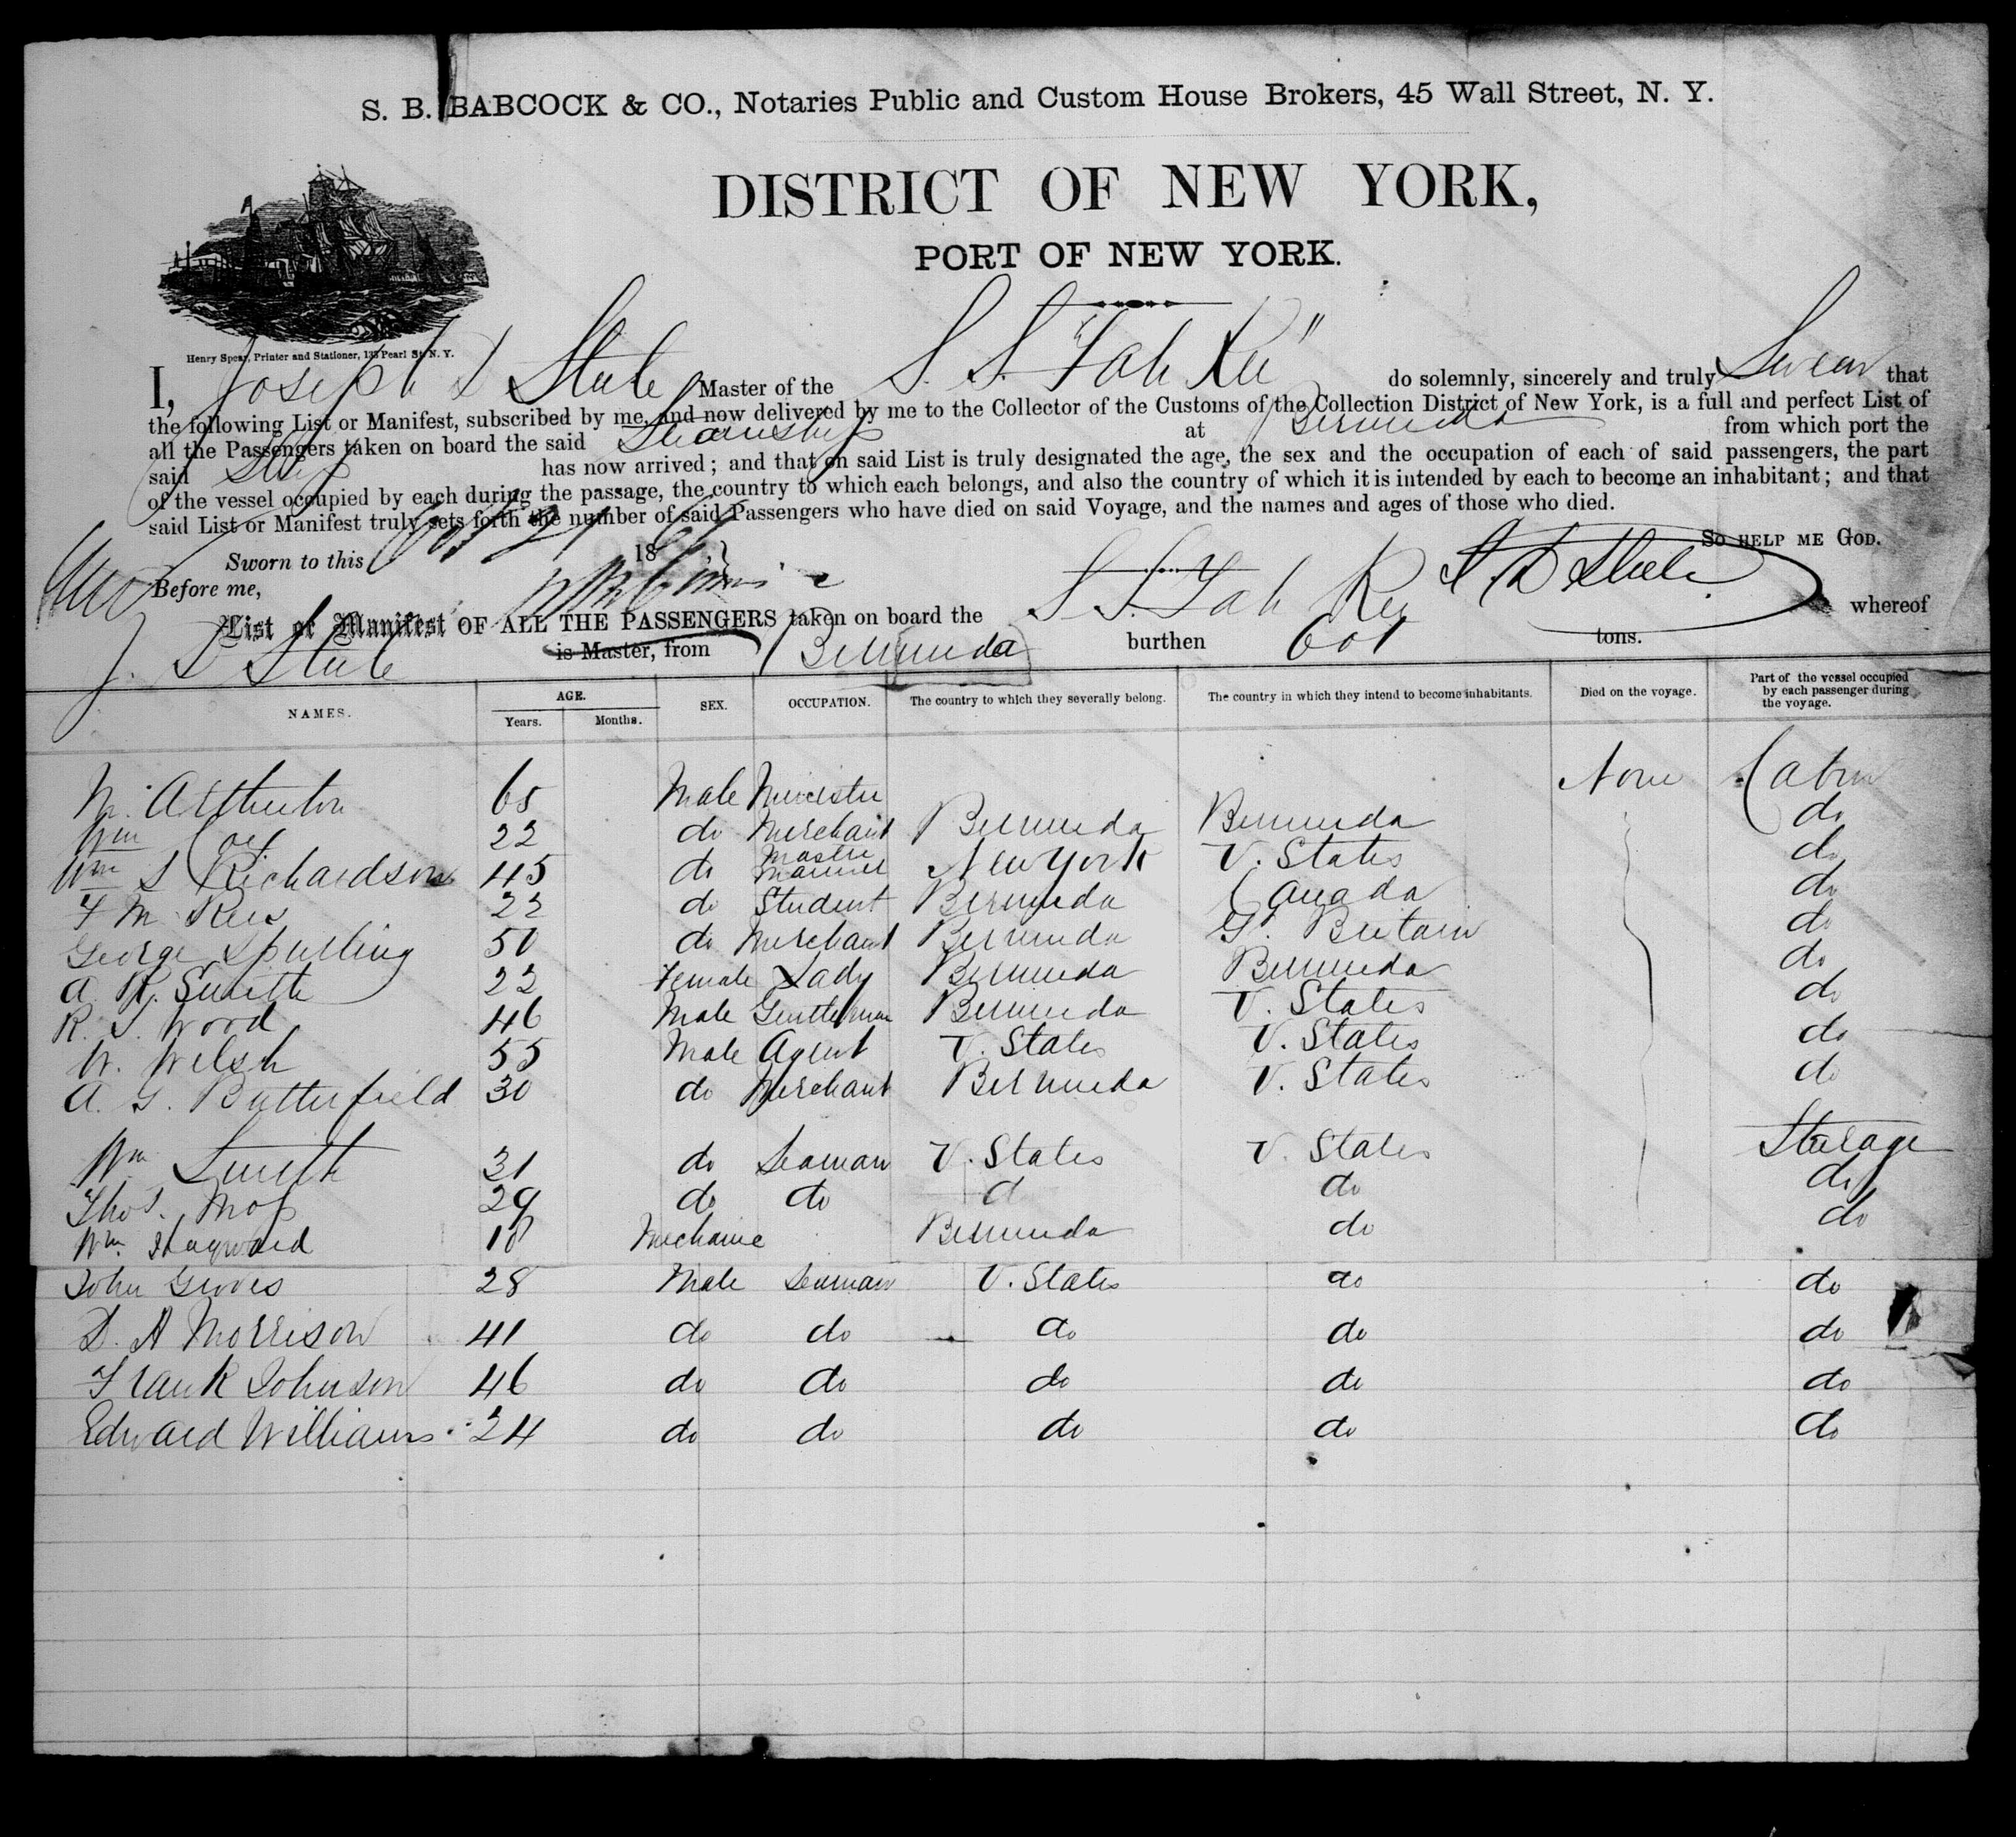 S. B. BABCOCK & CO., Notaries Public and Custom House Brokers, 45 Wall Street, N. Y.
DISTRICT OF NEW YORK,
PORT OF NEW YORK.
Henry Spear, Printer and Stationer, 133 Pearl St. N. Y.
I, Joseph D Steele Master of the S. S. "Fah Kee" do solemnly, sincerely and truly Swear that
the following List or Manifest, subscribed by me, and now delivered by me to the Collector of the Customs of the Collection District of New York, is a full and perfect List of
all the Passengers taken on board the said Steamship at Bermuda from which port the
said Ship has now arrived; and that on said List is truly designated the age, the sex and the occupation of each of said passengers, the part
of the vessel occupied by each during the passage, the country to which each belongs, and also the country of which it is intended by each to become an inhabitant; and that
said List or Manifest truly sets forth the number of said Passengers who have died on said Voyage, and the names and ages of those who died.
So HELP ME GOD.
Sworn to this Oct 21 18
Before me, J D Steele
List or Manifest OF ALL THE PASSENGERS taken on board the S S. Fah Kee whereof
J. D Steele is Master, from Bermuda burthen 601 tons.
NAMES. AGE. Years. Months. SEX. OCCUPATION. The country to which they severally belong. The country in which they intend to become inhabitants. Died on the voyage. Part of the vessel occupied by each passenger during the voyage.
65 Male Minister None Cabin
Wm 22 do Merchant Bermuda Bermuda do
Wm S Richardson 45 do Master Mariner New York U. States do
F M Rees 22 do Student Bermuda Canada do
George Spurling 50 do Merchant Bermuda Gt. Britain do
A. R. Smith 22 Female Lady Bermuda Bermuda do
R. S Wood 46 Male Gentleman Bermuda U. States do
W. Welsh 55 Male Agent U. States U. States do
A. G. Butterfield 30 do Merchant Bermuda U. States do
Wm Smith 31 do Seaman U. States U. States Steerage
Thos. Moss 29 do do d do do
Wm. Hayward 18 Mechanic Bermuda do do
John Groves 28 Male Seaman U. States do do
D. A Morrison 41 do do do do do
Frank Johnson 46 do do do do do
Edward Williams 24 do do do do do